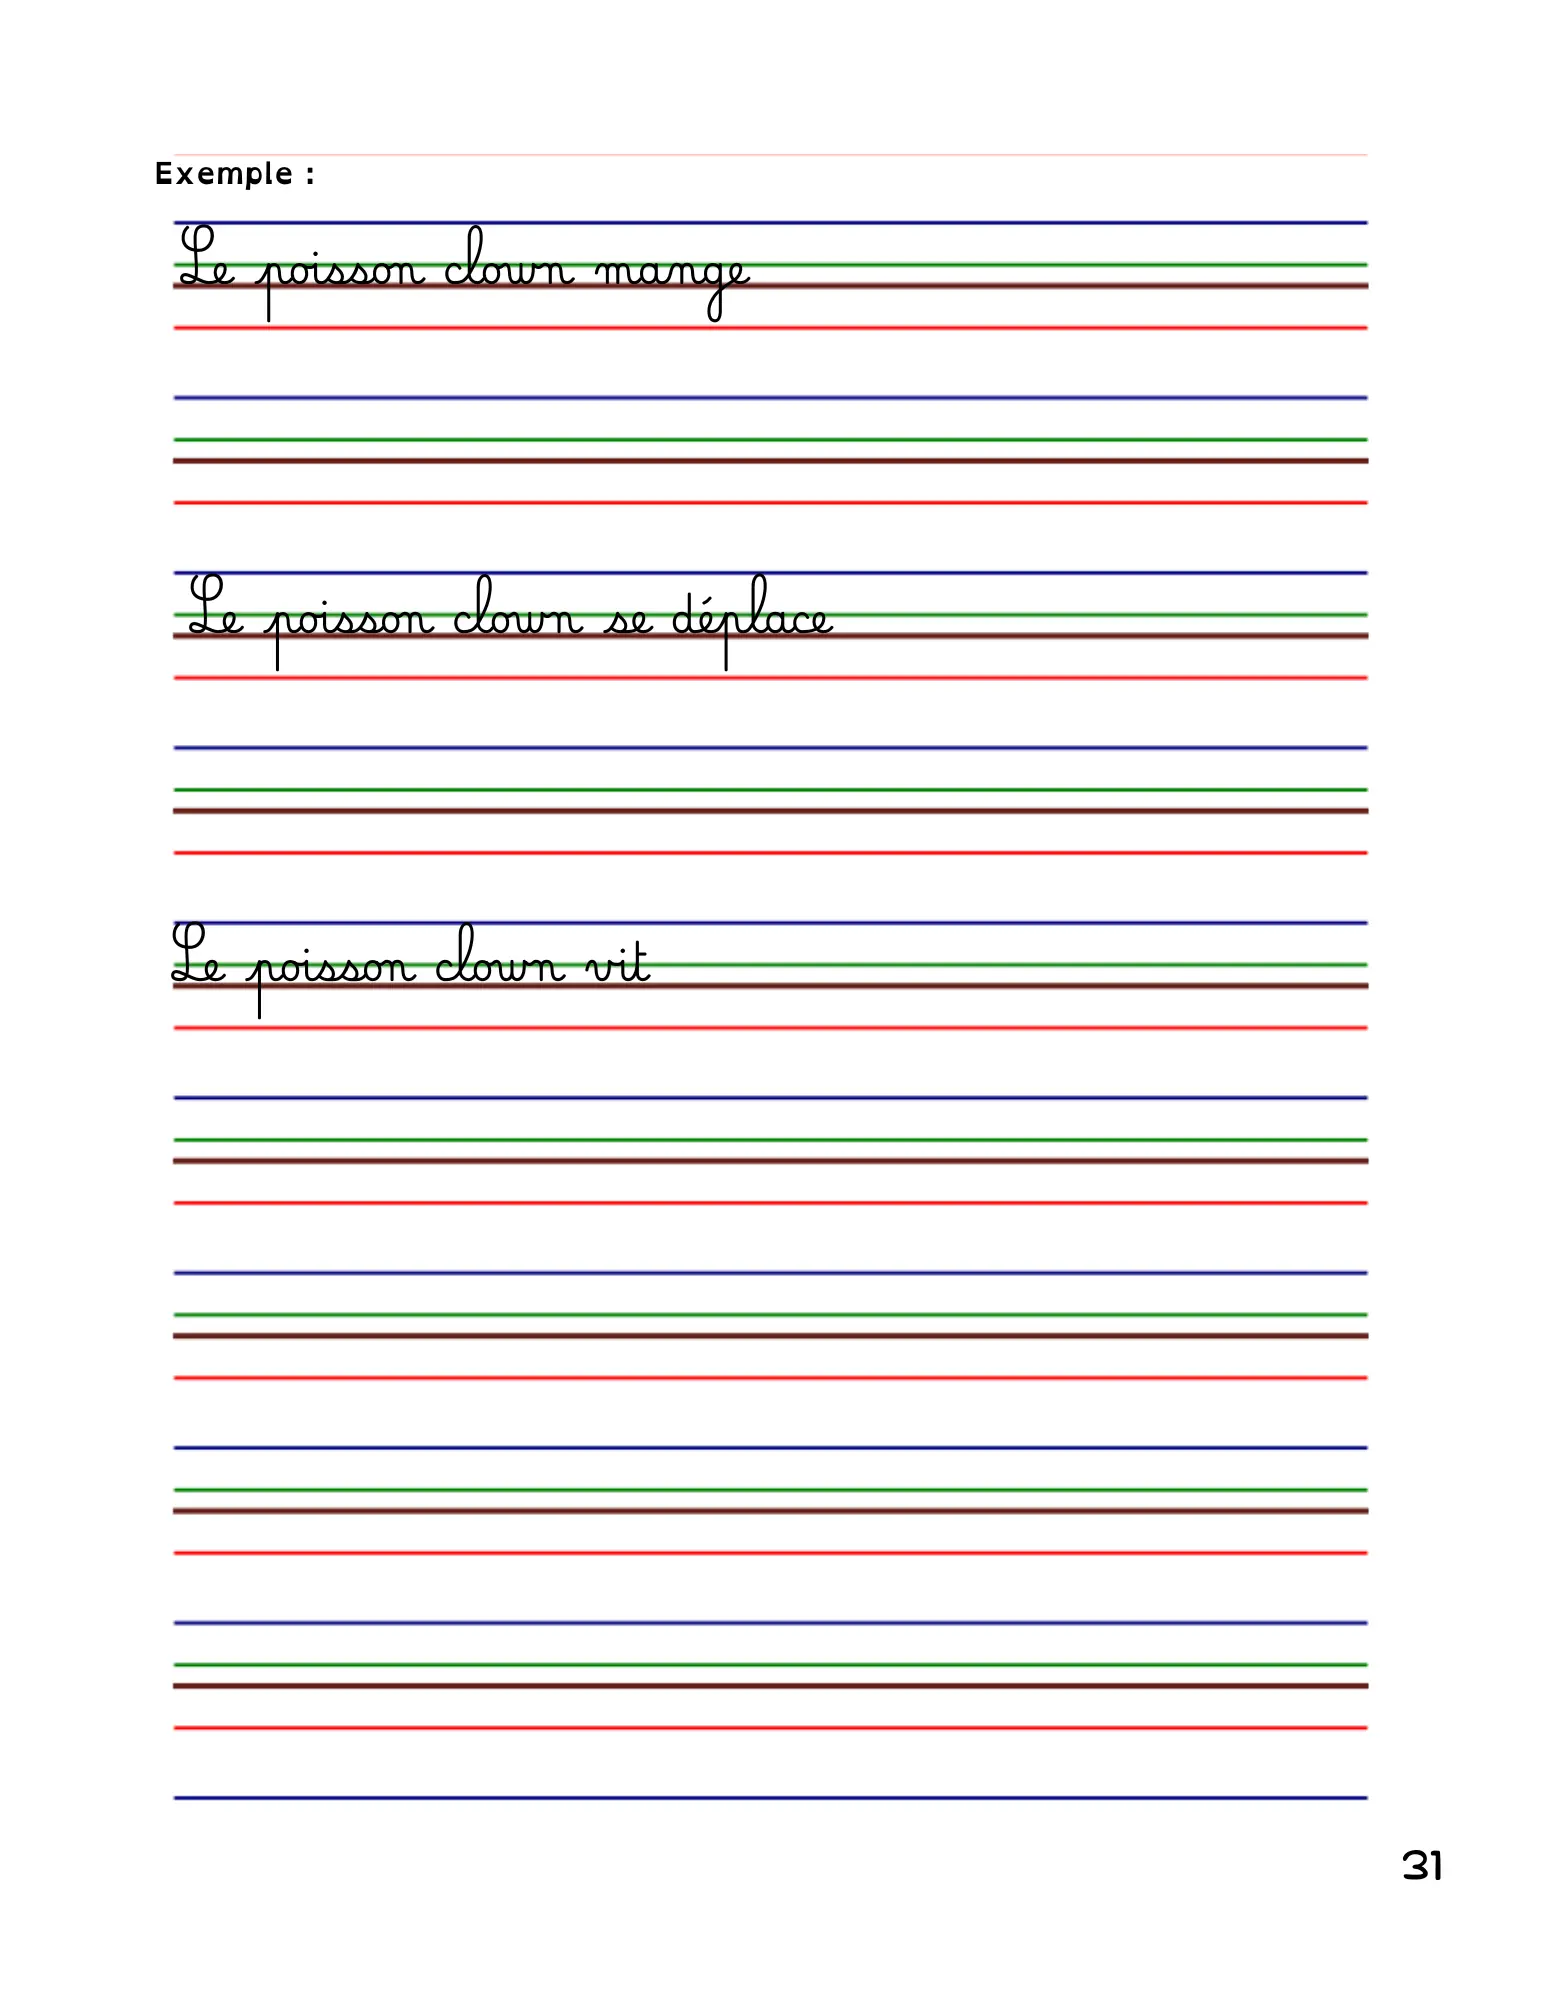 Exemple :
Le poisson clown mange
Le poisson clown se déplace
Le poisson clown vit
31